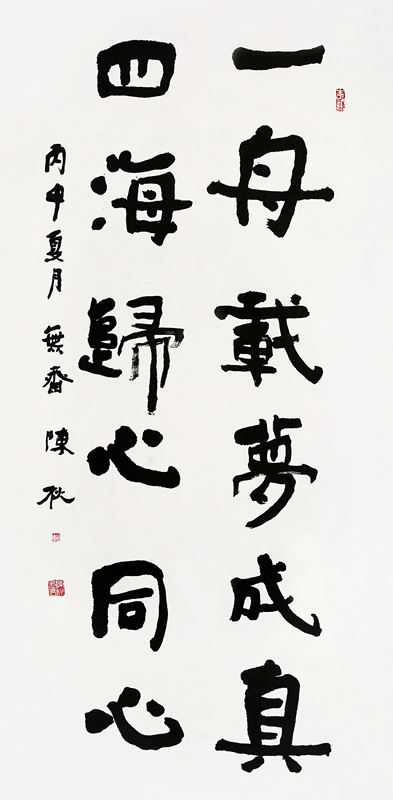 一舟載夢成真
四海歸心同心
丙申夏月 無齋 陳秋